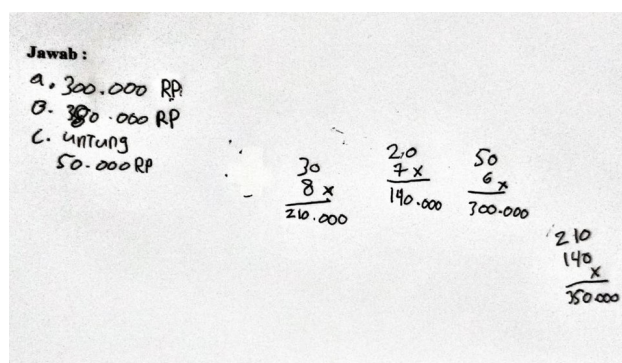 Jawab :
a. 300.000 RP
B. 350.000 RP
C. unTung
50.000 RP
30
8 x
210.000
20
7 x
140.000
50
6 x
300.000
210
140
x
350000